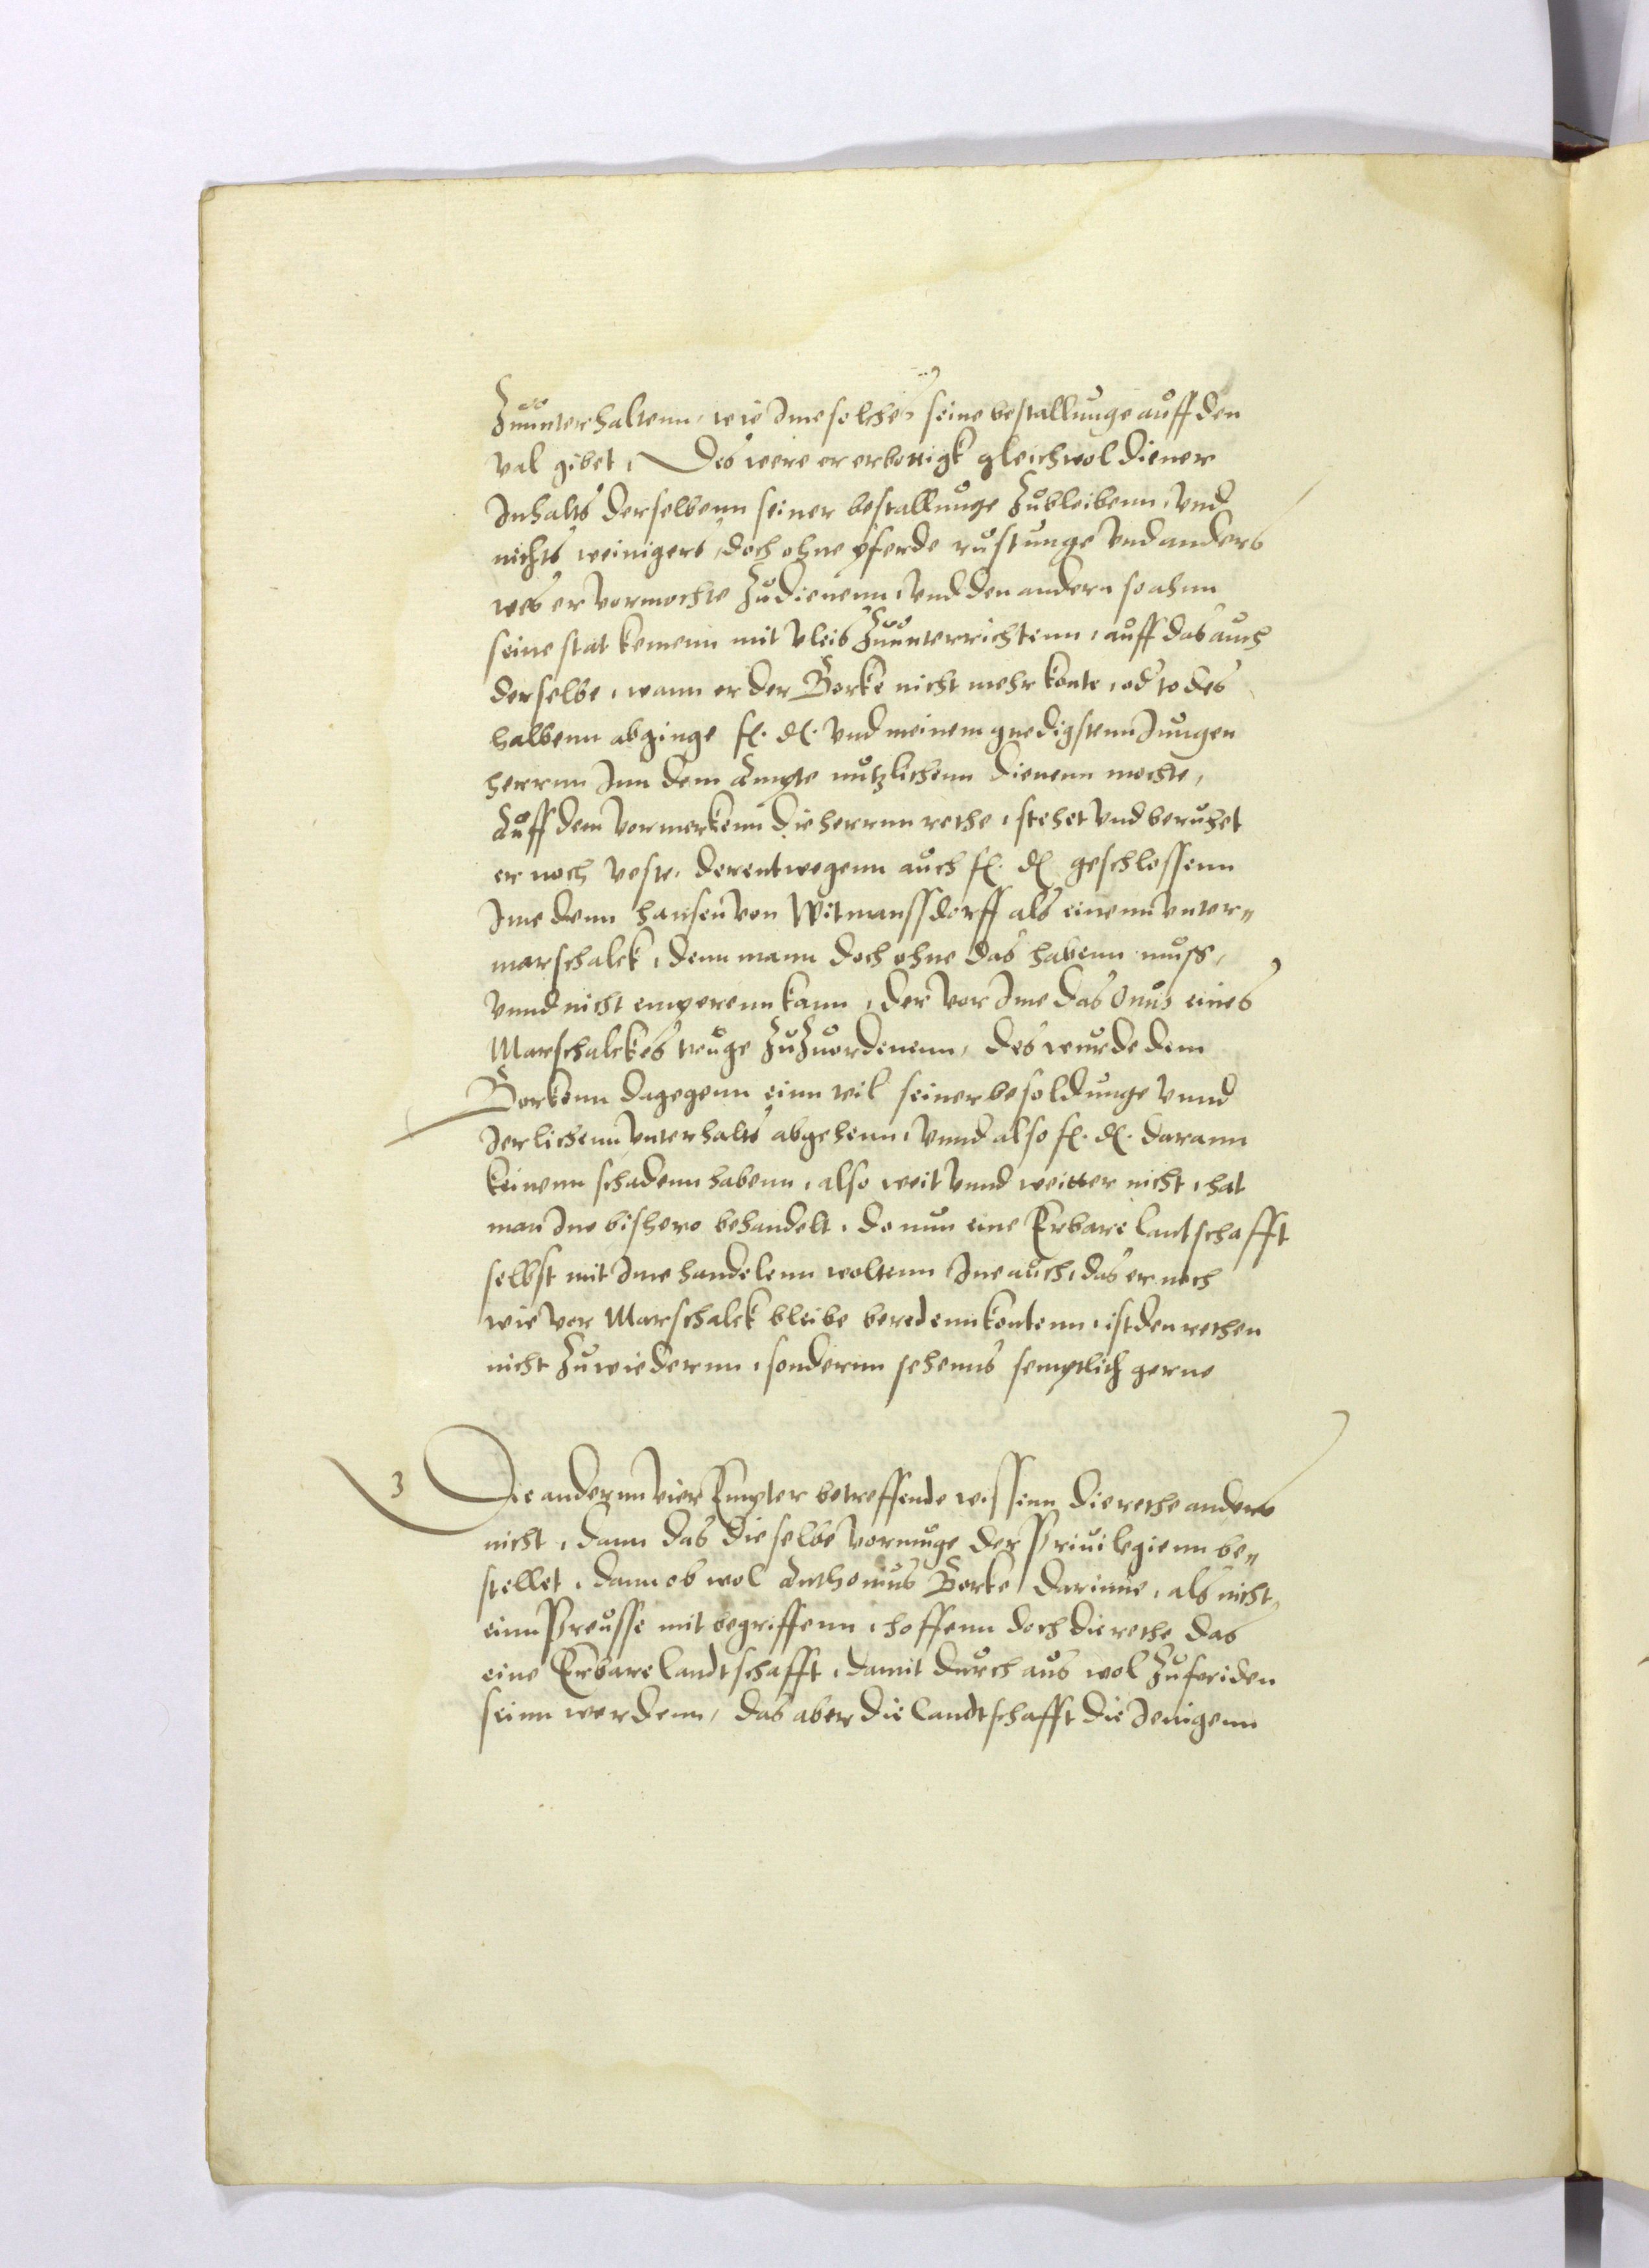 Zuunterhaltenn, wie Ime solches seine bestallunge auff den
val gibet, Des were er erbottigk gleichwol diener
Inhalts derselbenn seiner bestallunge Zubleibenn, vnd
nichts weinigers, doch ohne pferde rustunge vnd anders
wes er vormochte Zudienenn, vnd den andern so ahnn
seine stat kemenn mit vleis Zuunterrichtenn, auff das auch
derselbe, wann er der Borke nicht mehr konte, od todes
halbenn abginge fl. dl. vnd meinem gnedigstenn Jungen
herrnn Inn dem Ampte nutzlichenn dienenn mochte,
Auff dem vormerkenn die herrnn rethe, stehet vnd beruhet
er noch vest, derentwegenn auch fl. dl. geschlossenn
Ime denn hansen von Witmanssdorff als einenn vnter=
marschalck, denn mann doch ohne das habenn muss,
vnnd nicht emperenn kann, der vor Ime das Onus eines
Marschalckes truge ZuZuordenenn, des wurde dem
Borkenn dagegenn einn teil seiner besoldunge vnnd
Jerlichenn vnterhalts abgehenn, vnnd also fl. dl. darann
keinenn schadenn habenn, also weit vnnd weitter nicht, hat
man Ine bishero behandelt, do nun eine Erbare lantschafft
selbst mit Ime handelenn woltenn Ine auch, das er noch
wie vor Marschalck bleibe beredenn kontenn, ist den rethen
nicht Zuwiedernn, sondernn sehenns semptlich gerne
3 Die andernn vier Empter betreffende wissenn die rethe anders
nicht, dann das dieselbe vormuge der Priuilegienn be=
stellet, dann ob wol Anthonius Borke darinne, als nicht
einn Preusse mit begriffenn, hoffenn doch die rethe das
eine Erbare landtschafft, damit durchaus wol Zufriden
seinn werdenn, das aber die landtschafft die Jenigenn